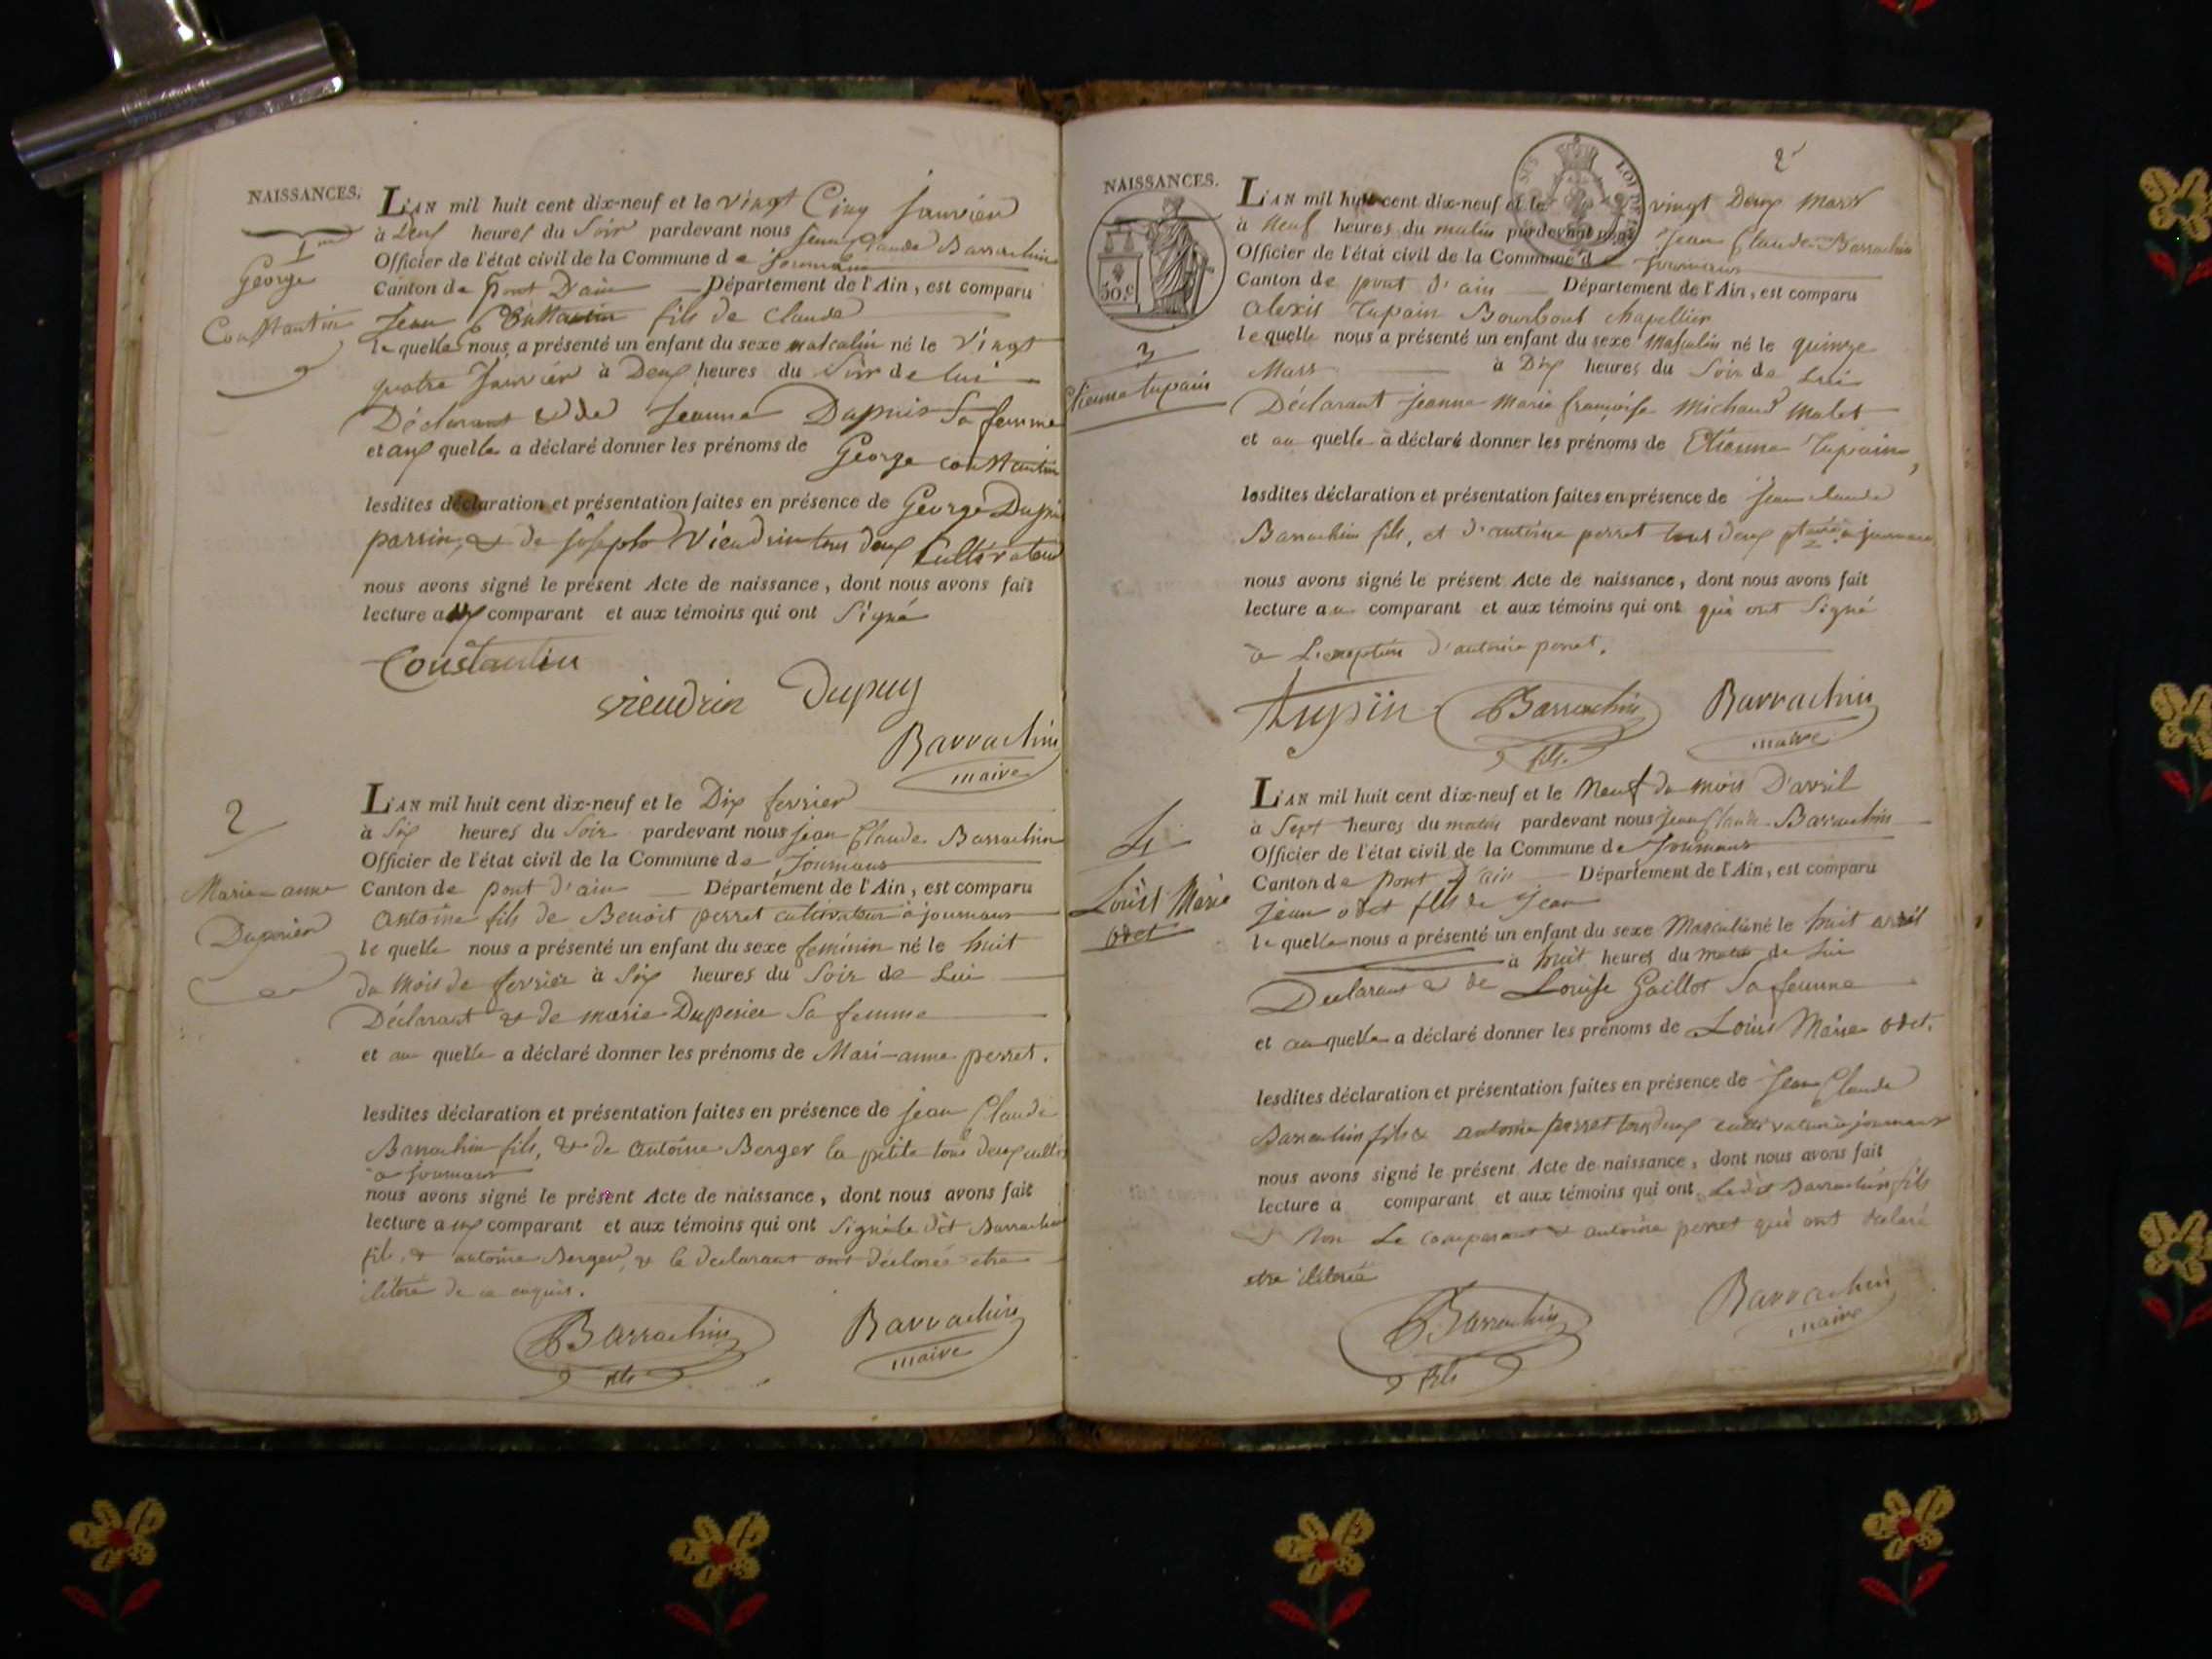 NAISSANCES.
1er
George
Constantin
L'AN mil huit cent dix-neuf et le vingt Cinq Janvier
à Deux heures du Soir pardevant nous jean Claude Barrachin
Officier de l'état civil de la Commune de journans
Canton de Pont D'ain Département de l'Ain, est comparu
Jean Constantin fils de Claude
le quelle nous a présenté un enfant du sexe masculin né le vingt
quatre Janvier à Deux heures du Soir de lui
Déclarant & de Jeanne Dupuis Sa femme
et aux quelle a déclaré donner les prénoms de George constantin
lesdites déclaration et présentation faites en présence de George Dupui
parrin, & de joseph Vieudrin tous deux Cultivateur
nous avons signé le présent Acte de naissance, dont nous avons fait
lecture aux comparant et aux témoins qui ont Signé
Constantin
vieudrin Dupuy
Barrachin
maire
2
Marie-anne
Duperier
L'AN mil huit cent dix-neuf et le Dix fevrier
à Six heures du Soir pardevant nous jean Claude Barrachin
Officier de l'état civil de la Commune de Journans
Canton de pont d'ain Département de l'Ain, est comparu
antoine fils de Benoit perret cultivateur à journans
le quelle nous a présenté un enfant du sexe feminin né le huit
du mois de fevrier à Six heures du Soir de Lui
Déclarant & de marie Duperier Sa femme
et au quelle a déclaré donner les prénoms de Mari-anne perret.
lesdites déclaration et présentation faites en présence de jean Claude
Barrachin fils, & de antoine Berger la petite tous deux
à journans
nous avons signé le présent Acte de naissance, dont nous avons fait
lecture aux comparant et aux témoins qui ont Signé le dit Barrachin
fils, & antoine Berger, & le declarant ont declarée etre
iliteré de ce enquis.
Barrachin
fils
Barrachin
maire
2
NAISSANCES.
50.c
3
Etienne tupain
L'AN mil huit cent dix-neuf et le vingt Deux Mars
à Neuf heures du matin pardevant nous Jean Claude Barrachin
Officier de l'état civil de la Commune de Journans
Canton de pont d'ain Département de l'Ain, est comparu
alexis Tupain chapellier
le quelle nous a présenté un enfant du sexe Masculin né le quinze
Mars à Dix heures du Soir de Lui
Déclarant jeanne Marie françoise Michaud Malet
et au quelle à déclaré donner les prénoms de Etienne Tupain,
lesdites déclaration et présentation faites en présence de jean claude
Barrachin fils, et d'antoine perret tous deux à journans
nous avons signé le présent Acte de naissance, dont nous avons fait
lecture au comparant et aux témoins qui ont qui ont Signé
à L'exception d'antoine perret.
tupin Barrachin Barrachin
fils. maire
4
Louis Marie
odet
L'AN mil huit cent dix-neuf et le Neuf du mois D'avril
à Sept heures du matin pardevant nous jean Claude Barrachin
Officier de l'état civil de la Commune de Journans
Canton de Pont d'ain Département de l'Ain, est comparu
Jean odet fils de Jean
le quelle nous a présenté un enfant du sexe Masculin né le huit avril
à huit heures du matin de Lui
Declarant & de Louise Gaillot Sa femme
et au quelle a déclaré donner les prénoms de Louis Marie odet.
lesdites déclaration et présentation faites en présence de Jean Claude
Barrachin fils & antoine perret tous deux cultivateur à journans
nous avons signé le présent Acte de naissance, dont nous avons fait
lecture a comparant et aux témoins qui ont Ledit Barrachin fils
& Non Le comparant & antoine perret qui ont declaré
etre iliteré
Barrachin
fils
Barrachin
maire